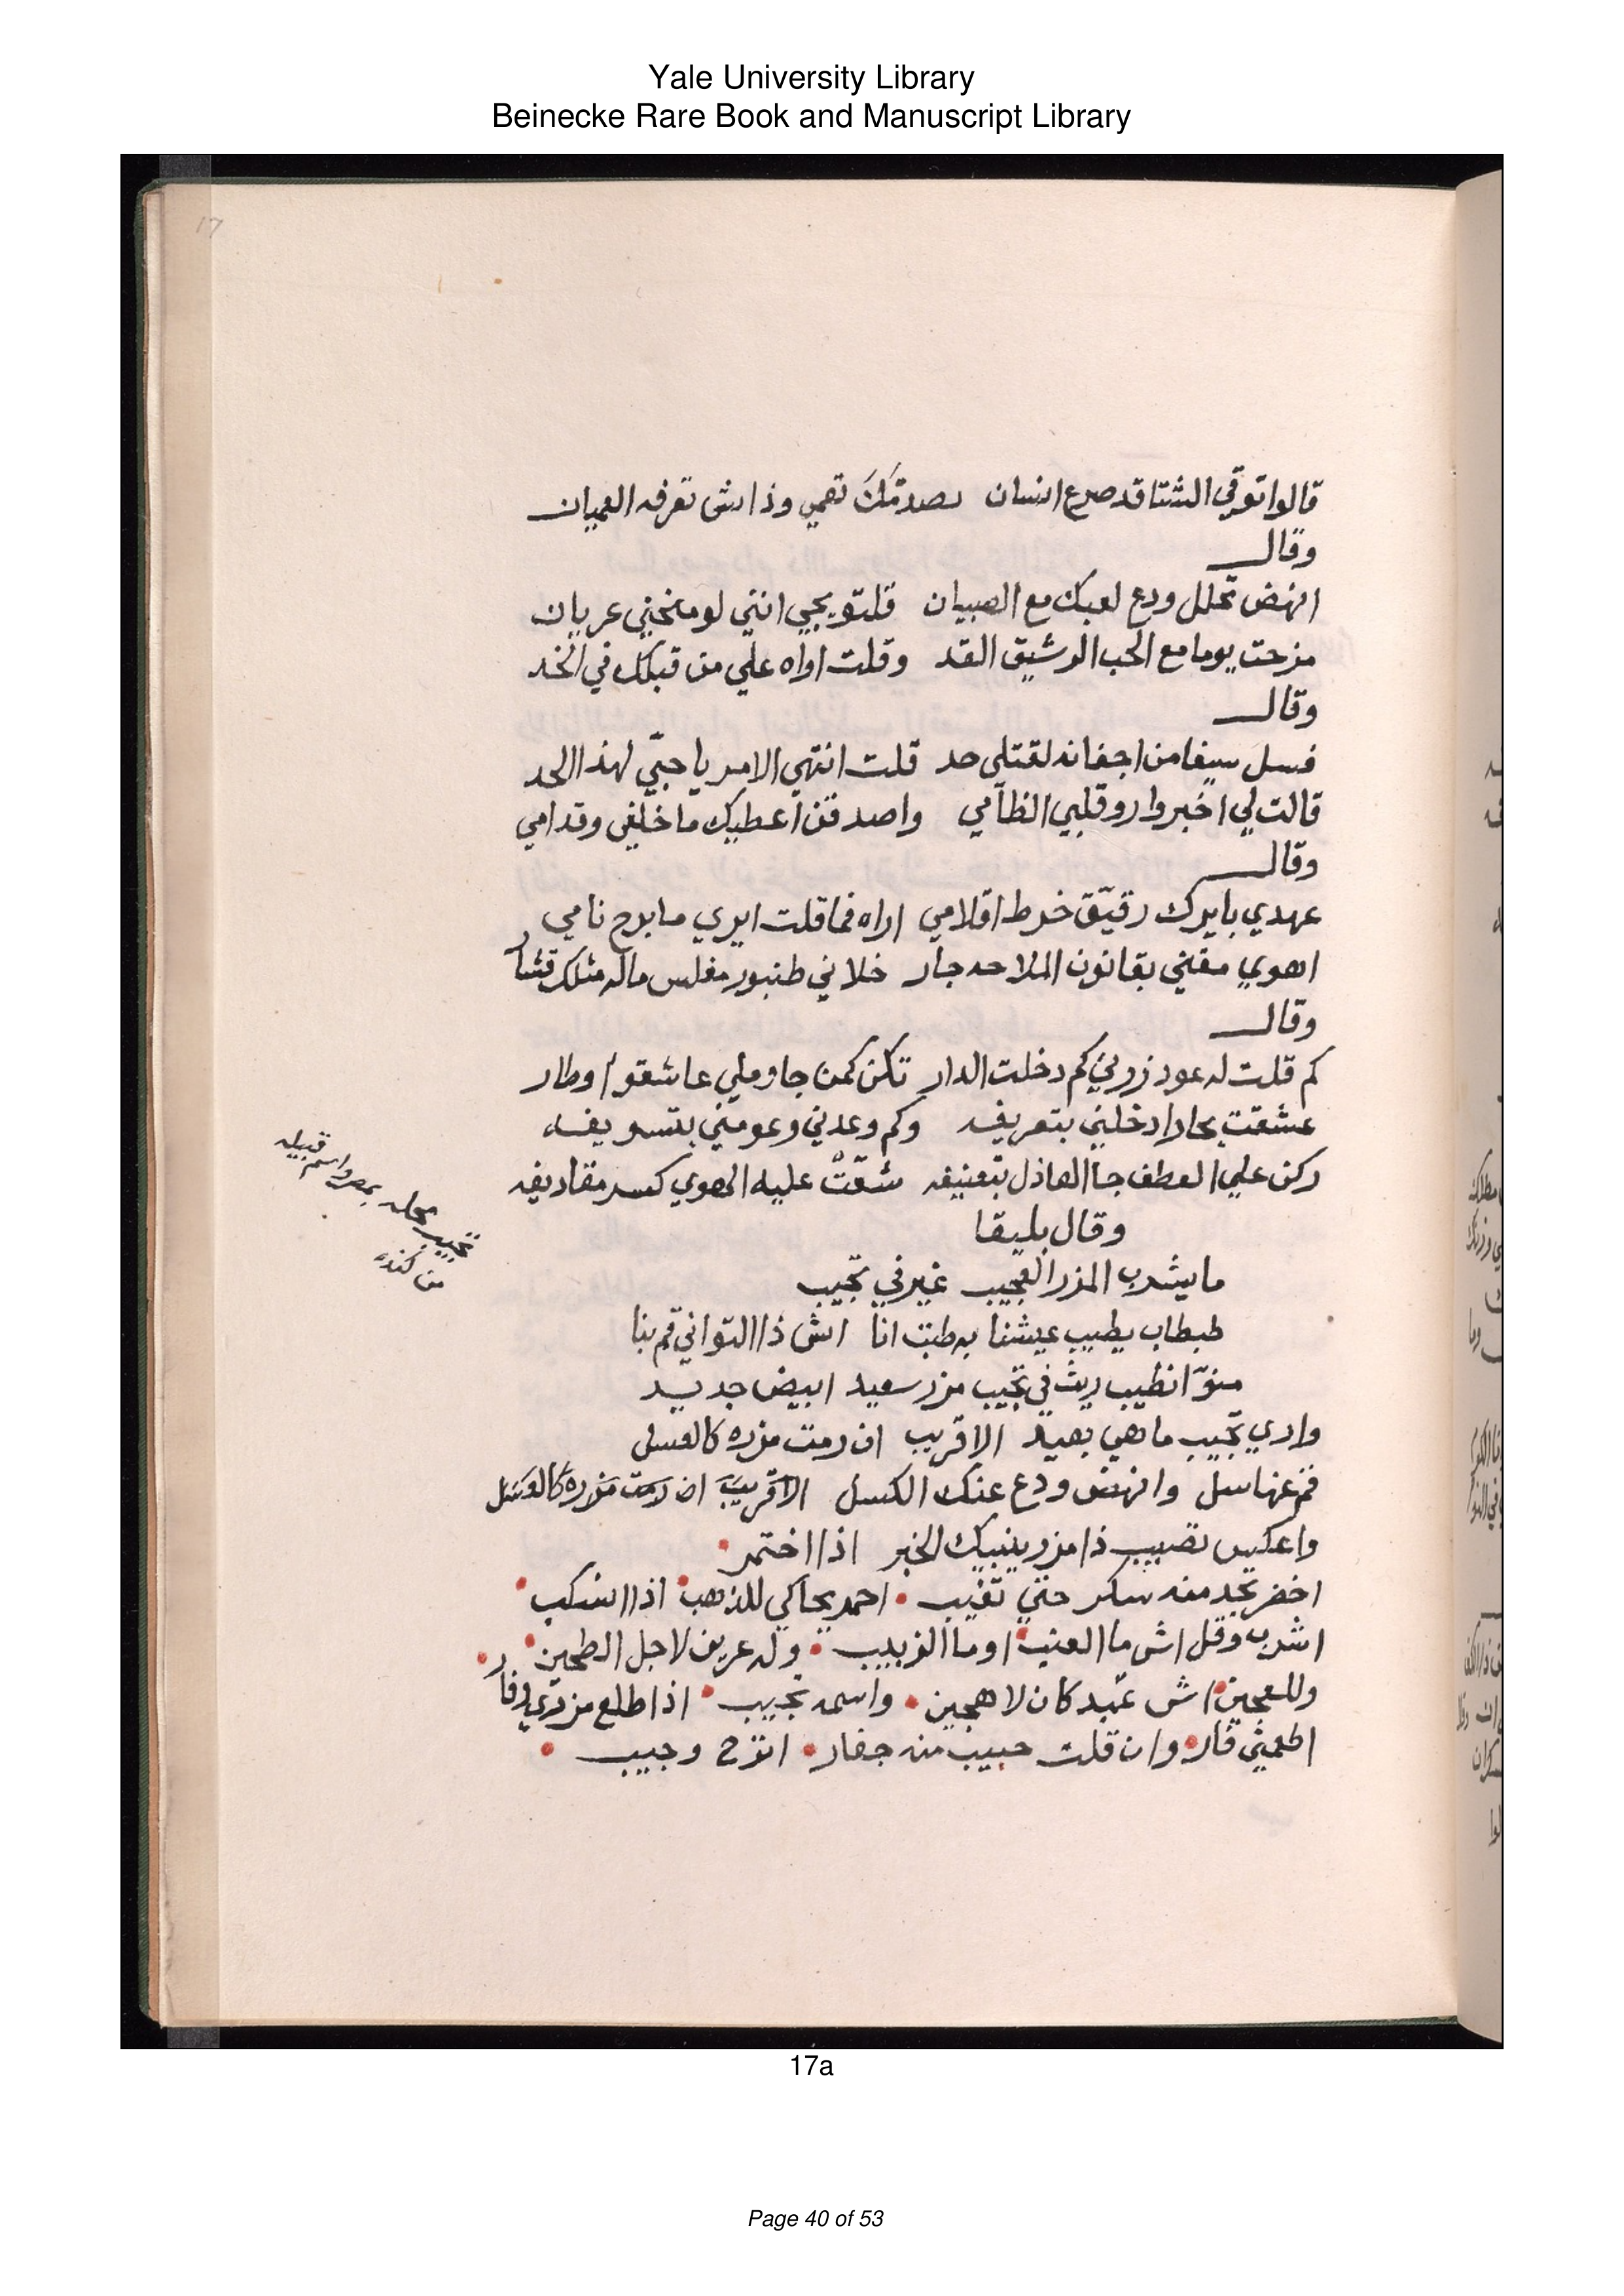 Yale University Library
Beinecke Rare Book and Manuscript Library
17
قالوا توقي الشتا قد صرع انسان بصدمتك تعمي وذا اش تعرفه العميان
وقال
انهض تحلل ودع لعبك مع الصبيان قلتو يجي انني لو منخني عريان
مزحت يوما مع الحب الرشيق القد وقلت اواه علي من قبلك في الخد
وقال
فسل سيفا من اجفانه لقتلي حد قلت انتهي الامر يا حبّي لهذا الحد
قالت لي اخبروا روقلبي الظآمي واصدقن اعطيك ما خلفي وقدامي
وقال
عهدي بايرك رقيّق خرط اقلامي اراه فما قلت ايري ما برح نامي
اهوي مغني بقانون الملاحه جار خلاني طنبور مفلس ماله مثلك قشا
وقال
كم قلت له عود زورني كم دخلت الدار تكن كمن جا وملي عاشقوا وطار
عشقت بحارا دخلني بتعريفه وكم وعدني وعومني بتسويفه
ركن علي العطف جا العاذل بتعنيفه شقّتْ عليه الهوي كسر مقاديفه
وقال بليقا
ما يشرب المزر العجيب غير في تجيب
طبطاب يطيب عيشنا به طبت انا اش ذا التواني قم بنا
منوّ انطيب ريت في تجيب مزر سعيد ابيض جديد
وادي تجيب ما هي بعيد الا قريب ان رمت مزره كالعسل
قم عنها سل وانهض ودع عنك الكسل الا قريب ان رمت مزره كالعسل
واعكس تصيب ذا مزر ينبيك الخبر اذا اختمر
اخضر تجد منه سكر حتي تغيب احمر يحاكي للذهب اذا انسكب
اشرب وقل اش ما العنب او ما الزبيب وله عريف لاجل الطحين
وللعجين اش عبد كان لا هجين واسمه نجيب اذا طلع مزدري لرفا
الجمثي قار وان قلت حبيب منه جفار انزح وجيب
تجيب محله بمصر واسم قبيله
من كنده
17a
Page 40 of 53